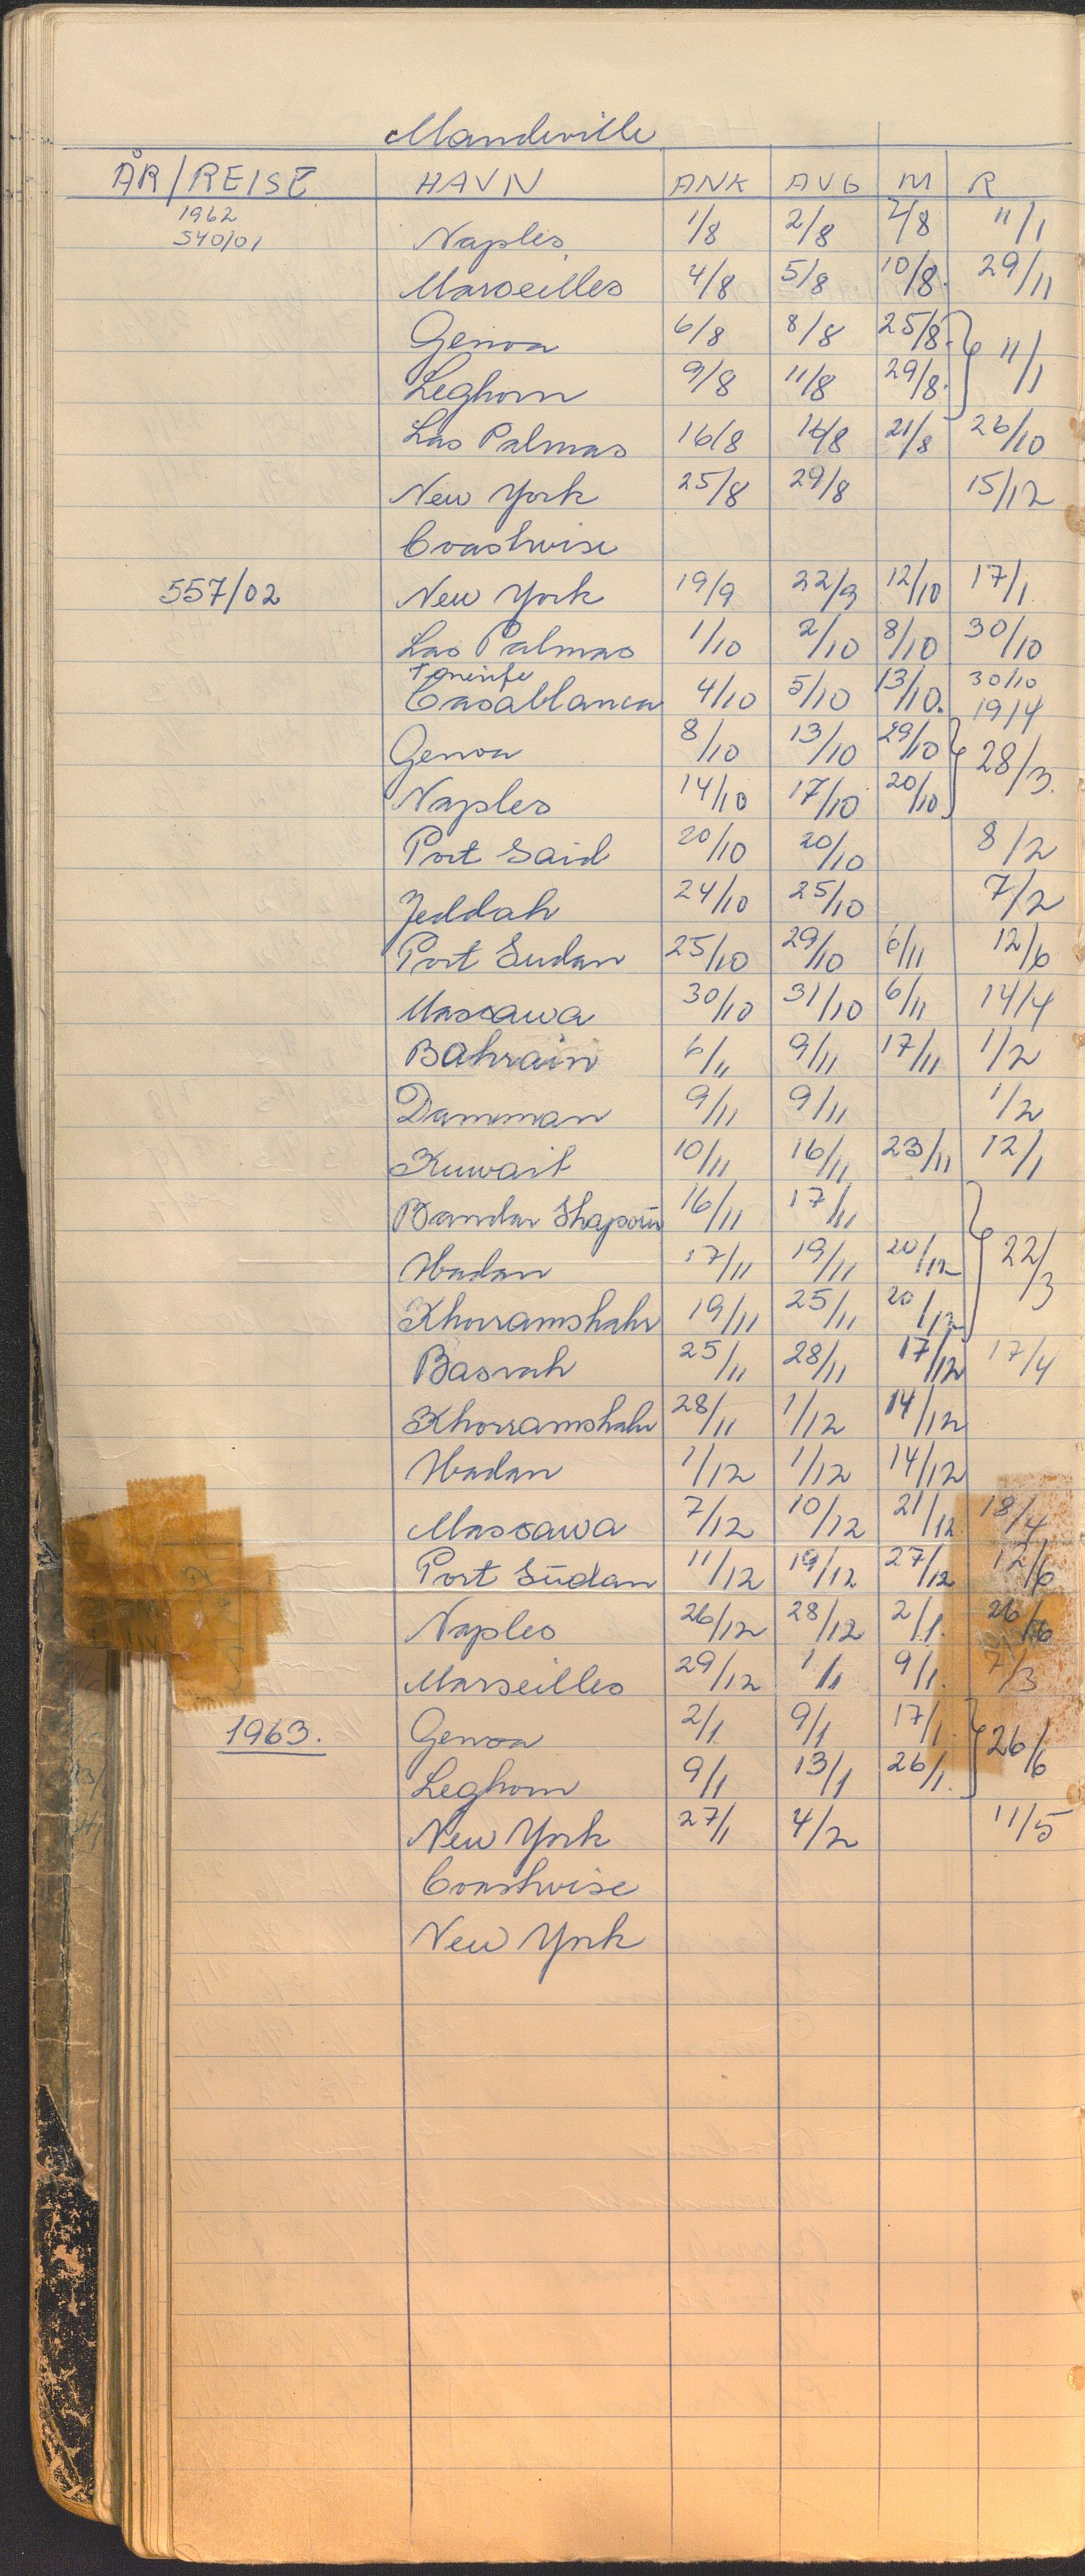 Mandeville
ÅR/REISE HAVN ANK AVG M R
1962
540/01 Naples 1/8 2/8 7/8 11/1
Marseilles 4/8 5/8 10/8 29/11
Genoa 6/8 8/8 25/8 11/1
Leghorn 9/8 11/8 29/8
Las Palmas 16/8 16/8 21/8 26/10
New York 25/8 29/8 15/12
Coastwise
557/02 New York 19/9 22/9 12/10 17/1
Las Palmas 1/10 2/10 8/10 30/10
Tenerife 30/10
Casablanca 4/10 5/10 13/10. 19/4
Genoa 8/10 13/10 29/10 28/3
Naples 14/10 17/10 20/10
Port Said 20/10 20/10 8/2
Jeddah 24/10 25/10 7/2
Port Sudan 25/10 29/10 6/11 12/6
Massawa 30/10 31/10 6/11 14/4
Bahrain 6/11 9/11 17/11 1/2
Damman 9/11 9/11 1/2
Kuwait 10/11 16/11 23/11 12/1
Bandar Shapour 16/11 17/11
Abadan 17/11 19/11 20/12 22/3
Khorramshahr 19/11 25/11 20/12
Basrah 25/11 28/11 17/12 17/4
Khorramshahr 28/11 1/12 14/12
Abadan 1/12 1/12 14/12
Massawa 7/12 10/12 21/12 18/4
Port Sudan 11/12 19/12 27/12 12/6
Naples 26/12 28/12 2/1. 26/6
Marseilles 29/12 1/1 9/1. 7/3
1963. Genoa 2/1 9/1 17/1. 26/6
Leghorn 9/1 13/1 26/1.
New York 27/1 4/2 11/5
Coastwise
New York